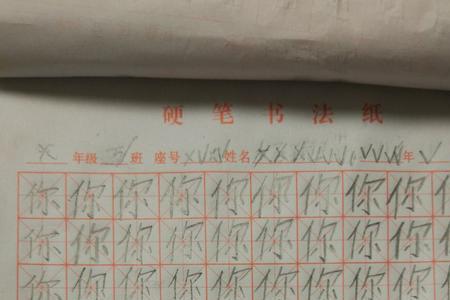 硬笔书法纸
年级 班 座号 姓名 年
你你你你你你你你你
你你你你你你你你你
你你你你你你你你你